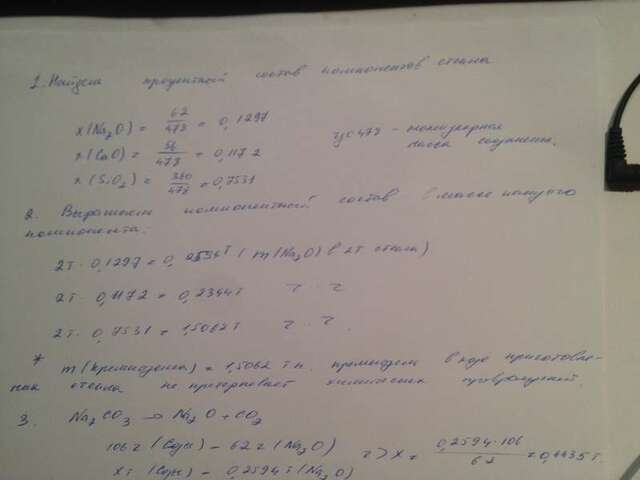 1. Найдем процентный состав компонентов стекла
x(Na₂O) = 62/478 = 0,1297
x(CaO) = 56/478 = 0,1172
где 478 - молекулярная масса соединения.
x(SiO₂) = 360/478 = 0,7531
2. Выражаем компонентный состав в массе каждого
компонента:
2т · 0,1297 = 0,2594т (m(Na₂O) в 2т стекла)
2т · 0,1172 = 0,2344т
2т · 0,7531 = 1,5062т
* m(кремнезема) = 1,5062т т.к. кремнезем в ходе приготовле-
ния стекла не претерпевает химических превращений.
3. Na₂CO₃ → Na₂O + CO₂
106г (соды) - 62г (Na₂O)
=> x = 0,2594·106/62 = 0,4435т.
xт (соды) - 0,2594т (Na₂O)